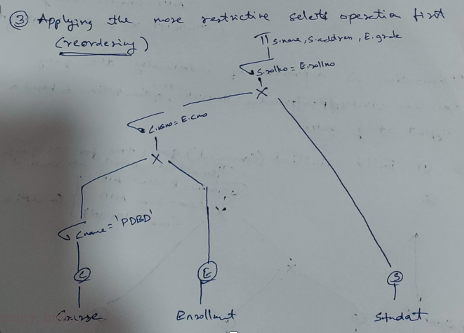 ③ Applying the more restrictive select operation first
(reordering)
π s.name, s.address, E.grade
σ s.rollno = E.rollno
X
σ C.cno = E.cno
X
σ cname = 'PDBD'
C
E
S
Course
Enrollment
Student